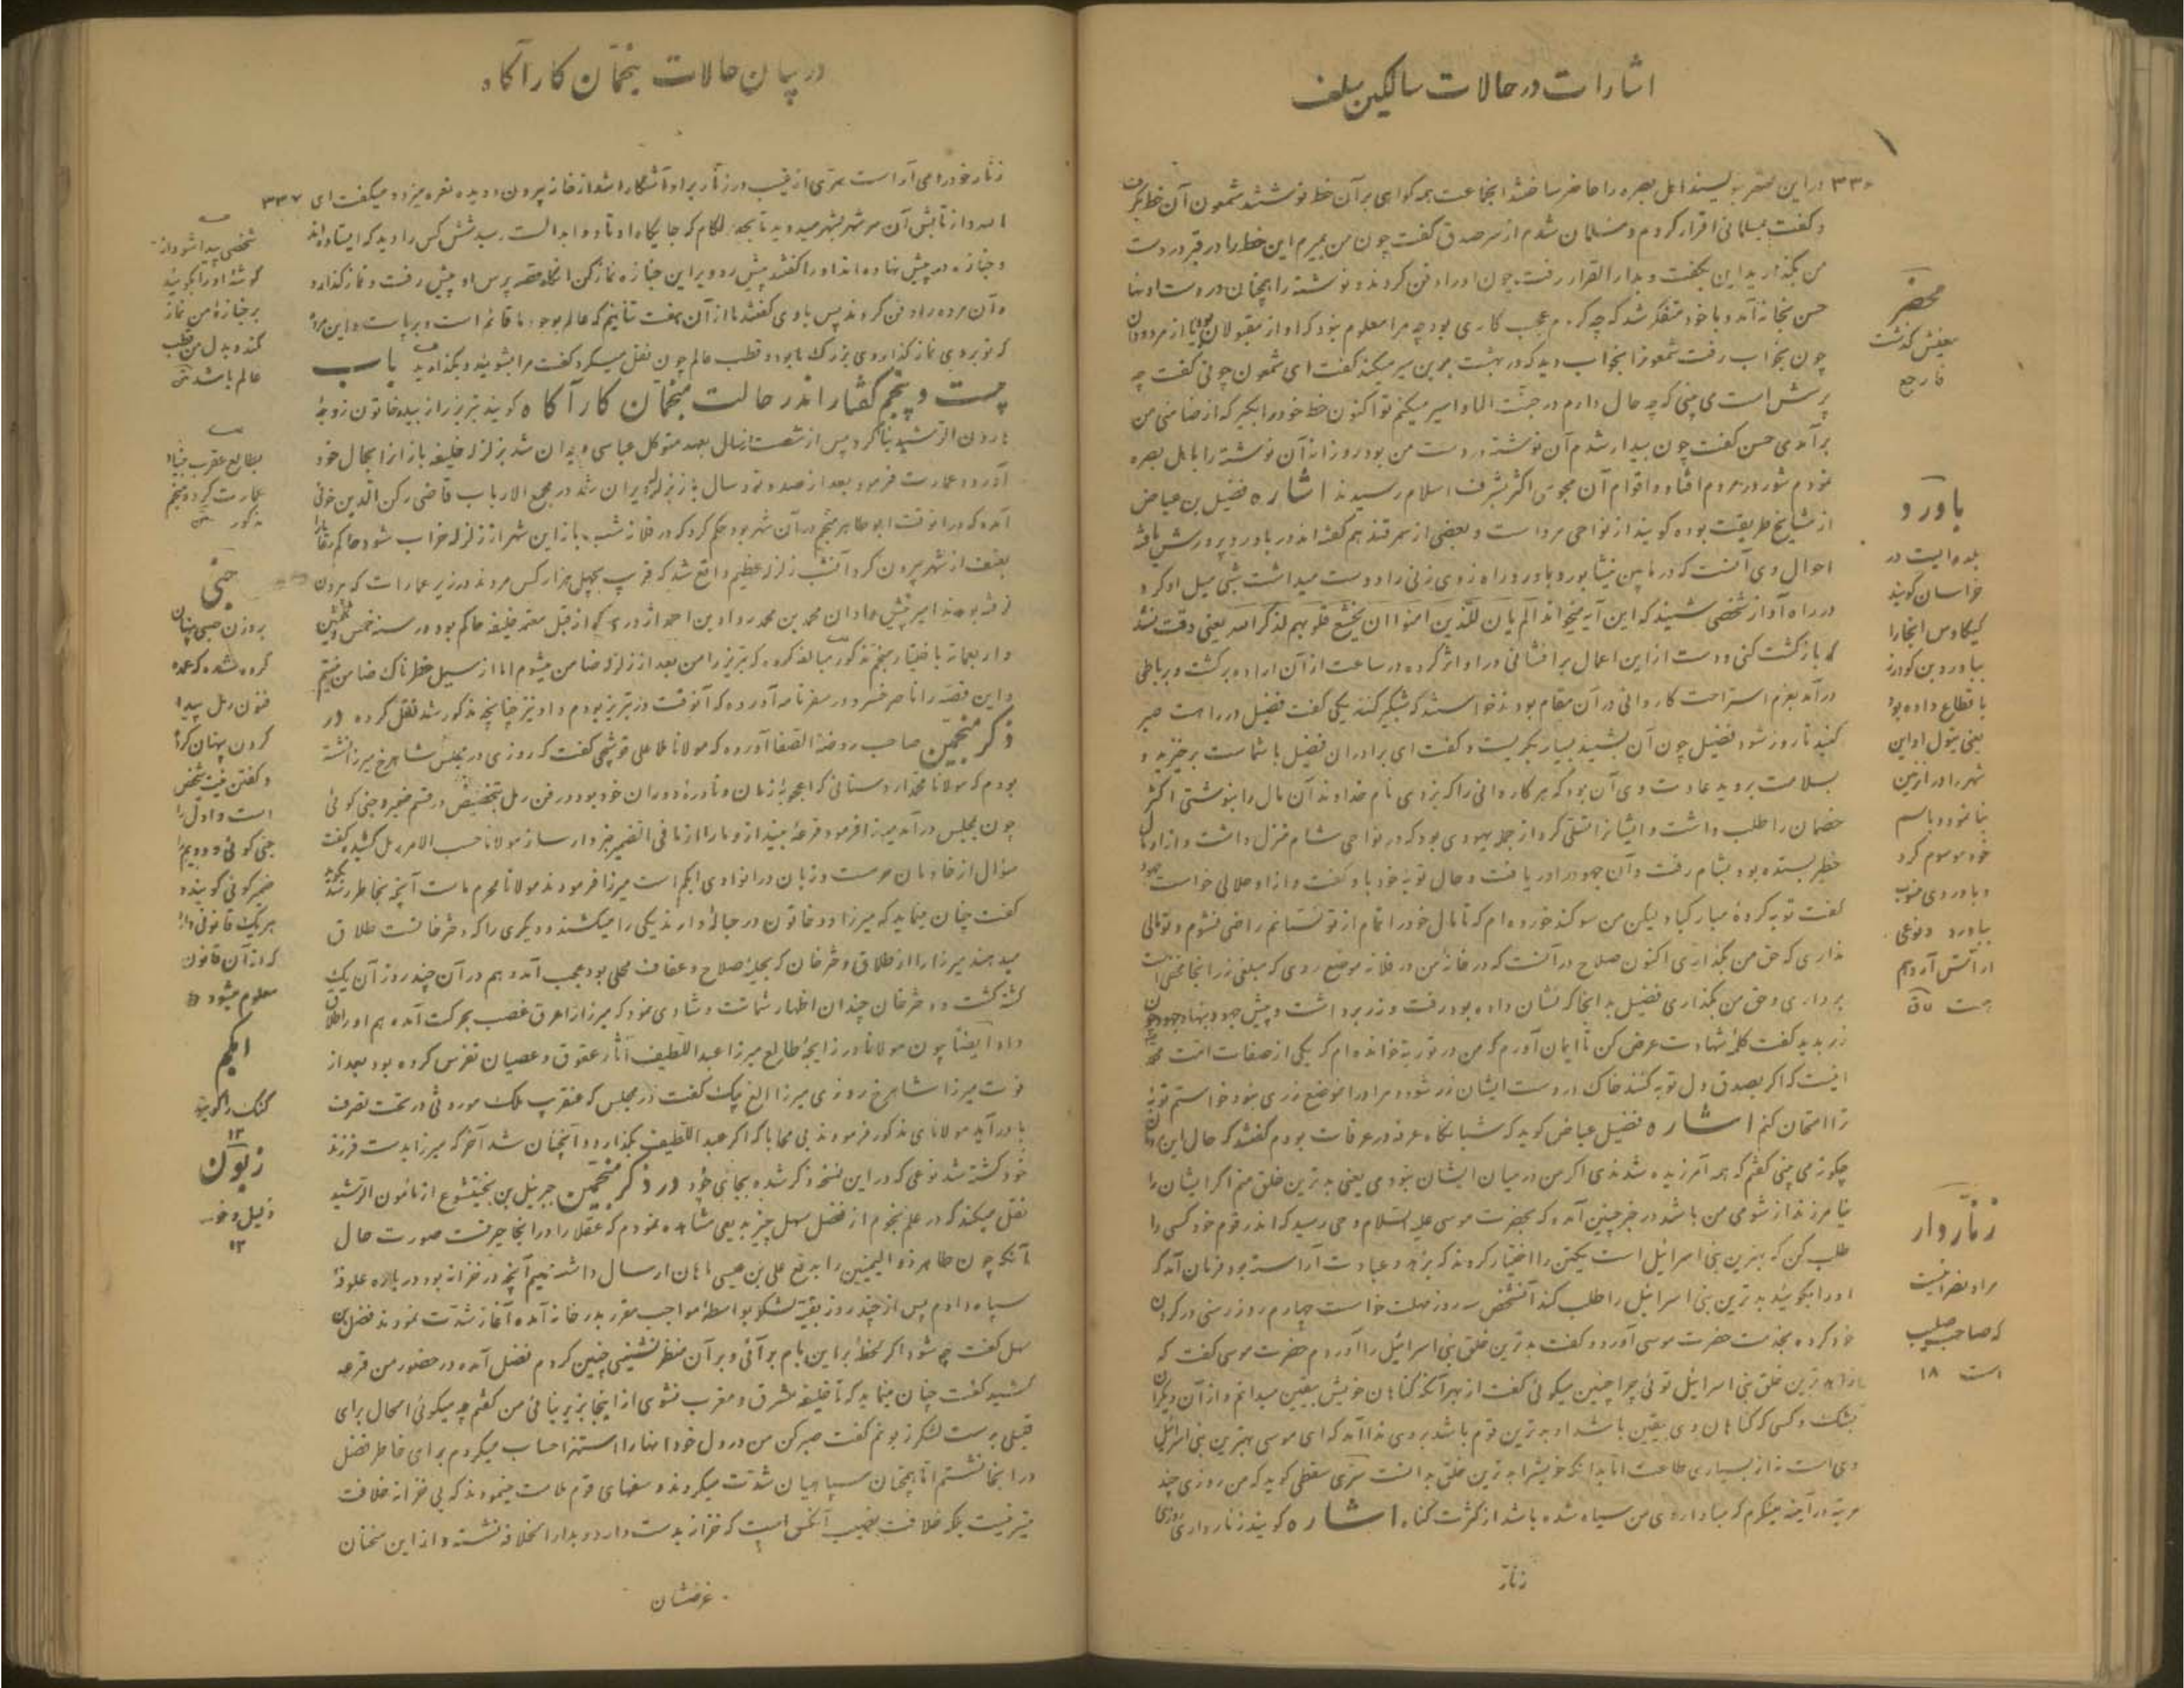 اشارات در حالات سالکین سلف
۳۳۶ در این محضر بنویسید اهل بصره را حاضر ساختند انجماعت همه کواهی بر آن خط نوشتند شمعون آن خط بکرفت
و کفت بمسلمانی اقرار کردم و مسلمان شدم از سر صدق کفت چون من بمیرم این خط را در قبر در دست
من بکذارید این بکفت و بدار القرار رفت چون او را دفن کردند و نوشته را همچنان در دست او نهاد
حسن بخانه آمد و با خود متفکر شد که چه کردم عجب کاری بود چه مرا معلوم نبود که او از مقبولان بود یا از مردودان
چون بخواب رفت شمعونرا بخواب دید که در بهشت برین سیر میکند کفت ای شمعون چونی کفت چه
پرسش است می بینی که چه حال دارم در جنت الماوا سیر میکنم تو اکنون خط خود را بکیر که از ضامنی من
برآمدی حسن کفت چون بیدار شدم آن نوشته در دست من بود روزانه آن نوشته را باهل بصره
نمودم شور در مردم افتاد و اقوام آن مجوس اکثر بشرف اسلام رسیدند اشاره فضیل بن عیاض
از مشایخ طریقت بوده کویند از نواحی مرو است و بعضی از سمرقند هم کفته اند در باورد پرورش یافته
احوال وی آنست که در مابین نیشابور و باورد راه زدی زنی را دوست میداشت شبی میل او کرد
در راه آواز شخصی شنید که این آیه میخواند الم یان للذین امنوا ان یخشع قلوبهم لذکر الله یعنی وقت نشد
که بازکشت کنی و دست از این اعمال برافشانی در او اثر کرده در ساعت از آن اراده برکشت و برباطی
در آمد بعزم استراحت کاروانی در آن مقام بودند خواستند که شبکیر کنند یکی کفت فضیل در راهست صبر
کنید تا روز شود فضیل چون آن بشنید بسیار بکریست و کفت ای برادران فضیل با شماست برخیزید و
بسلامت بروید عادت وی آن بود که هر کاروانی را که بزدی نام خداوند آن مال را بنوشتی اکثر
خصمان را طلب داشت و ایشانرا تسلی کرد از جمله یهودی بود که در نواحی شام منزل داشت و از او مال
خطیر بستده بود بشام رفت و آن جهود را دریافت و حال توبه خود باو بکفت و از او حلالی خواست جهود
کفت توبه کرده مبارکباد لیکن من سوکند خورده ام که تا مال خود را تمام از تو نستانم راضی نشوم و تو مالی
نداری که حق من بکذاری اکنون صلاح در آنست که در خانه من در فلان موضع روی که مبلغی زر انجا مخفی است
برداری و حق من بکذاری فضیل بدانجا که نشان داده بود رفت و زر برداشت و پیش جهود بنهاد جهود چون
زر بدید کفت کلمه شهادت عرض کن تا ایمان آورم که من در توریة خوانده ام که یکی از صفات امت محمد
اینست که اکر بصدق دل توبه کنند خاک در دست ایشان زر شود و مرا در آنموضع زری نبود خواستم توبه
ترا امتحان کنم اشاره فضیل عیاض کوید که شبانکاه عرفه در عرفات بودم کفتند که حال این
چکونه می بینی کفتم که همه آمرزیده شدندی اکر من در میان ایشان نبودمی یعنی بدترین خلق منم اکر ایشان را
نیامرزند از شومی من باشد در خبر چنین آمده که بحضرت موسی علیه السلام وحی رسید که اندر قوم خود کسی را
طلب کن که بهترین بنی اسرائیل است یکتن را اختیار کردند که بزهد و عبادت آراسته بود فرمان آمد که
او را بکوئید بدترین بنی اسرائیل را طلب کند آنشخص سه روز مهلت خواست چهارم روز رسنی در کردن
خود کرده بخدمت حضرت موسی آورد و کفت بدترین خلق بنی اسرائیل را آوردم حضرت موسی کفت که
زاهد ترین خلق بنی اسرائیل توئی چرا چنین میکوئی کفت از بهر آنکه کناهان خویش بیقین میدانم و از آن دیکران
بشک و کسی که کناهان وی بیقین باشد او بدترین قوم باشد بروی ندا آمد که ای موسی بهترین بنی اسرائیل
وی است نه از بسیاری طاعت اما بدانکه خویشرا بدترین خلق بدانست سری سقطی کوید که من روزی چند
مرتبه در آینه مینکرم که مبادا روی من سیاه شده باشد از کثرت کناه اشاره کویند زنارداری روزی
زنار
محضر
معنیش کذشت
فارجع
باورد
بلده ایست در
خراسان کویند
کیکاوس انجا را
بباورد بن کودرز
باقطاع داده بود
یعنی بتول او این
شهر را در انزمین
بنا نمود و باسم
خود موسوم کرد
و باوردی منسوب
بباورد و نوعی
از آتش آرد هم
هست
زنار دار
مراد نصرانیست
که صاحب صلیب
است ۱۸
در بیان حالات منجمان کارآکاه
زنار خود را می آراست سری از غیب در زنار بر او آشکارا شد از خانه بیرون دویده نعره میزد و میکفت ای ۳۳۷
الله و از تابش آن سر شهر بشهر میدوید تا بجبه لکام که جایکاه اوتاد و ابدالست رسید شش کس را دید که ایستاده اند
و جنازه در پیش نهاده اند او را کفتند پیش رو و بر این جنازه نماز کن آنکاه قصه پرس او پیش رفت و نماز کذارد
و آن مرده را دفن کردند پس با وی کفتند ما از آن هفت تنانیم که عالم بوجود ما قائم است و برپا است و این مرد
که تو بروی نماز کذاردی بزرک ما بود و قطب عالم چون نقل میکرد کفت مرا بشوئید و بکذارید باب
بیست و پنجم کفتار اندر حالت منجمان کارآکاه کویند تبریز را زبیده خاتون زوجه
هارون الرشید بنا کرد و پس از شصت سال بعهد متوکل عباسی ویران شد بزلزله خلیفه باز آنرا بحال خود
آورد و عمارت فرمود بعد از صد و نود سال باز بزلزله ویران شد در مجمع الارباب قاضی رکن الدین خوئی
آمده که در انوقت ابوطاهر منجم در آن شهر بود حکم کرد که در فلان شب باز این شهر از زلزله خراب شود حاکم
بعنف از شهر بیرون کرد آنشب زلزله عظیم واقع شد که قریب بچهل هزار کس مردند در زیر عمارات که بیرون
نرفته بودند امیر پیش محمد بن محمد رواد بن احمد ازدری که از قبل معتمد خلیفه حاکم بود در سنه خمس و ثلثین
و اربعمائه باختیار منجم مذکور مبالغه کرده که تبریز را من بعد از زلزله ضامن میشوم اما از سیل خطرناک ضامن نیستم
و این قصه را ناصر خسرو در سفرنامه آورده که آنوقت در تبریز بودم و او نیز چنانچه مذکور شد نقل کرده در
ذکر منجمین صاحب روضة الصفا آورده که مولانا ملا علی قوشچی کفت که روزی در مجلس شاهرخ میرزا نشسته
بودم که مولانا محمد اردستانی که اعجوبه زمان و نادره دوران خود بود در فن رمل بتخصیص در قسم ضمیر و جنی کوئی
چون بمجلس در آمد میرزا فرمود قرعه بینداز و ما را از ما فی الضمیر خبردار ساز مولانا حسب الامر رمل کشید کفت
سؤال از خادمان حرمست و زبان در انوادی ابکم است میرزا فرمودند مولانا محرم ماست آنچه بخاطر رسد بکوید
کفت چنان مینماید که میرزا دو خاتون در حباله دارند یکی را میکشند و دیکری را که دخترخانست طلاق
میدهند میرزا را از طلاق دخترخان که بحلیه صلاح و عفاف محلی بود عجب آمد و هم در آن چند روز آن یک
کشته کشت و دخترخان چندان اظهار شماتت و شادی نمود که میرزا را عرق غضب بحرکت آمده هم او را طلاق
داد ایضاً چون مولانا در زایجه طالع میرزا عبداللطیف آثار عقوق و عصیان تفرس کرده بود بعد از
فوت میرزا شاهرخ روزی میرزا الغ بیک کفت در مجلس که عنقریب ملک موروثی در تحت تصرف
ما در آید مولانای مذکور فرمودند بی محابا که اکر عبداللطیف بکذارد و آنچنان شد آخر که میرزا بدست فرزند
خود کشته شد نوعی که در این نسخه ذکر شده بجای خود در ذکر منجمین جبرئیل بن بختیشوع از مامون الرشید
نقل میکند که در علم نجوم از فضل سهل چیز بدیعی مشاهده نمودم که عقلا را در انجا حیرتست صورت حال
آنکه چون طاهر ذوالیمینین را بدفع علی بن عیسی ماهان ارسال داشتیم آنچه در خزانه بود در باره علوفه
سپاه دادم پس از چند روز بقیة لشکر بواسطه مواجب مقرر بدر خانه آمده آغاز شدت نمودند فضل بن
سهل کفت چه شود اکر لحظه براین بام بر آئی و بر آن منظر نشینی چنین کردم فضل آمده در حضور من قرعه
کشید کفت چنان مینماید که تا خلیفه مشرق و مغرب نشوی از اینجا بزیر نیائی من کفتم چه میکوئی الحال برای
قتیلی بدست لشکر زبونم کفت صبر کن من در دل خود اینها را استهزا حساب میکردم برای خاطر فضل
در انجا نشستم اما همچنان سپاهیان شدت میکردند و سفهای قوم ملامت مینمودند که بی خزانه خلافت
میسر نیست بلکه خلافت نصیب آنکس است که خزانه بدست دارد و بدار الخلافه نشسته و از این سخنان
غرضشان
شخصی پیدا شود از
کوشه او را بکوئید
بر جنازه من نماز
کند و بدل من قطب
عالم باشد
بطالع عقرب بنیاد
عمارت کرد و منجم
مذکور
جنی
بروزن
کرده شده که عمده
فنون رمل پیدا
کردن پنهان کرده
و کفتن نیت شخص
است و اول را
جنی کوئی و دویم را
ضمیر کوئی کویند و
هر یک قانونی دارد
که از آن قانون
معلوم میشود
ابکم
کنک را کویند
۱۲
زبون
ذلیل و خوار
۱۲